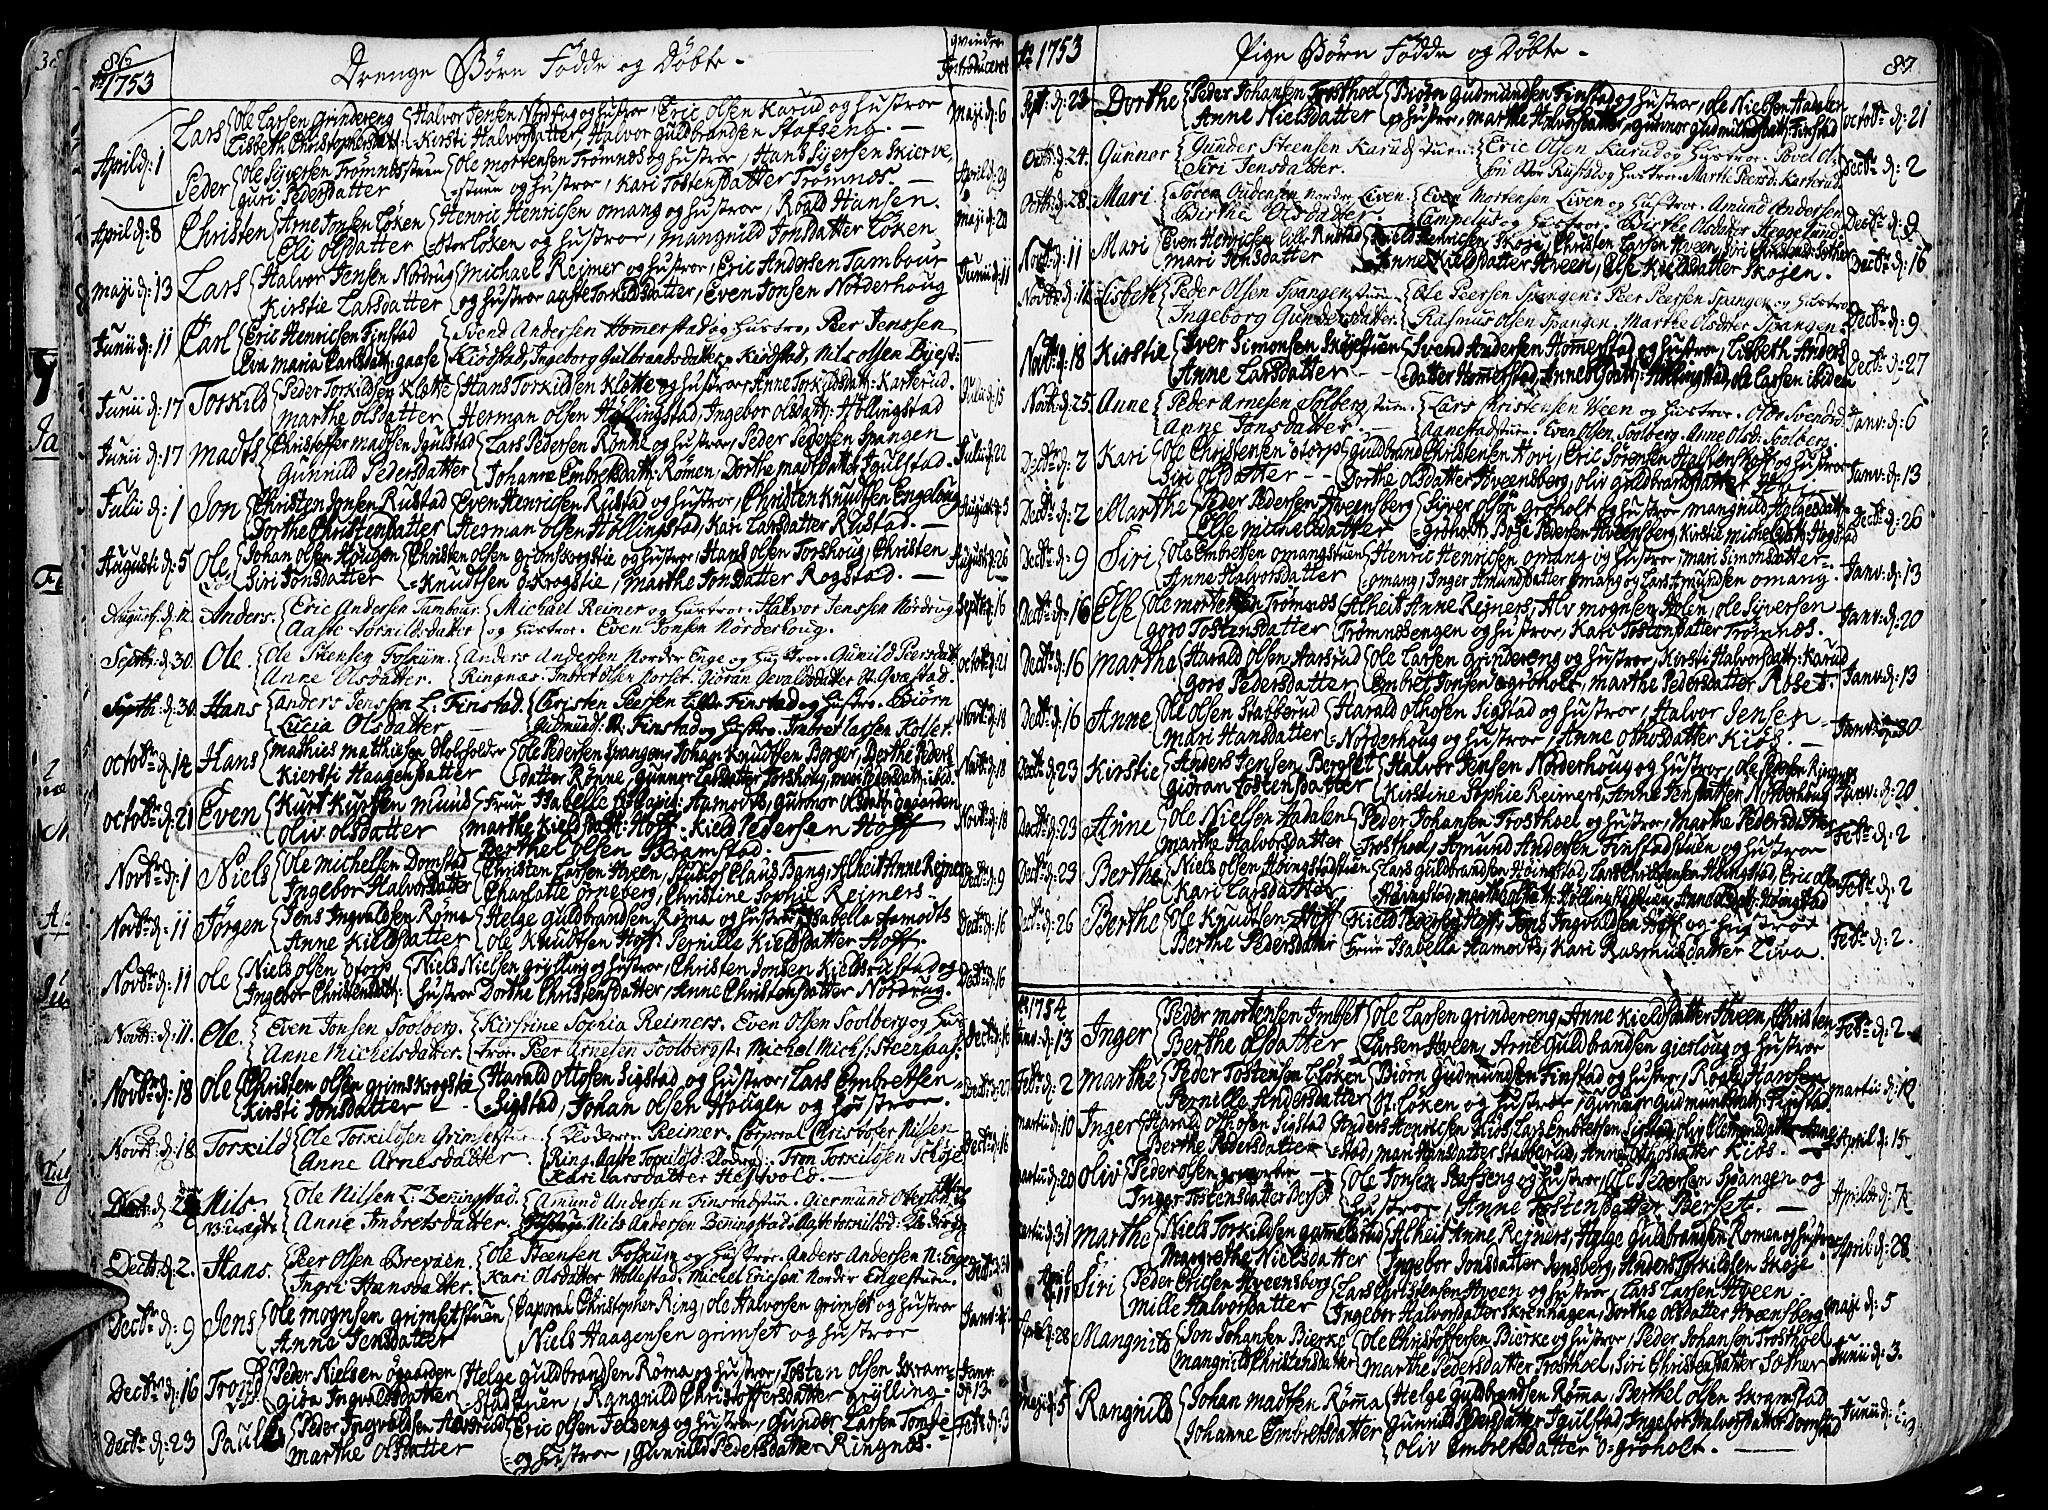 86
Ao 1753
Drenge Børn Fødde og Døbte
qvinder Introduceret
April d: 1
Lars
Ole Larsen Grindereng
Lisbeth Christophersdatt:
Halvor Jensen Nordrug og hustroe, Eric Olsen Karud og hustroe
Kirsti Halvorsdatter, Halvor Guldbrandsen Stafseng.
Maji d: 6
Peder
Ole Syversen Trømnesstuen
Guri Pedersdatter
Ole Mortensen Trømnes og hustroe, Hans Syversen Skierve,
stuen og hustroe, Kari Tostensdatter Trømnes.
April d: 29
April d: 8
Christen
Arne Jonsen Løken
Eli Olsdatter
Henric Henricsen Omang og hustroe, Roald Hansen
Storløken og hustroe, Mangnild Jonsdatter Løken
Maji d: 20
Maji d: 13
Lars
Halvor Jensen Nordrug
Kirstie Larsdatter
Michael Rejmer og hustroe, Eric Andersen Tambour
og hustroe Aaste Torkildsdatter, Even Jonsen Norderhoug
Junii d: 11
Junii d: 11
Carl
Eric Henricsen Finstad
Eva Maria Carlsdatt: Gaase
Svend Andersen Hommerstad og hustroe, Peer Jenssen
Kiøstad, Ingeborg Gulbrandsdatter Kiøstad, Nils Olsen Byest:
Junii d: 17
Torkild
Peder Torkildsen Kløtte
Marthe Olsdatter
Hans Torkildsen Kløtte og hustroe Anne Torkildsdatt: Karterud
Herman Olsen Høllingstad, Ingebor Olsdatt: Høllingstad
Julii d: 15
Junii d: 17
Madts
Christoffer Madtsen Igulstad
Gunnild Pedersdatter
Lars Pedersen Rønne og hustroe, Peder Pedersen Spangen
Johanne Embretsdatt: Rømen, Dorthe Madtsdatter Igulstad.
Julii d: 22
Julii d: 1
Jon
Christen Jonsen Rustad
Dorthe Christensdatter
Even Henricsen Rustad og hustroe, Christen Knudtsen Engeloug
Herman Olsen Høllingstad, Kari Larsdatter Rustad.
August d: 5
Augusti d: 5
Ole
Johan Olsen Hougen
Siri Jonsdatter
Christen Olsen Grimskrogstie og hustroe, Hans Olsen Torshoug, Christen
Knudtsen o Krogstie, Marthe Jonsdatter Rogstad.
August d: 26
August: d: 12
Anders.
Eric Andersen Tambour.
Aaste Torkildsdatter
Michael Reimer og hustroe. Halvor Jenssen Nordrug
og hustroe. Even Jonsen Norderhoug.
Septr d: 16
Septr: d: 30.
Ole.
Ole Steensen Folsum.
Anne Olsdatter.
Anders Andersen Norder Enge og hustroe. Gunild Peersdatt:
Ringnæs. Imbret Olsen Torset. Giøran Gevaldsdatter
Octobr d: 21
Septr d: 30.
Hans
Anders Jenssen L. Finstad.
Lucia Olsdatter
Christen Peersen Lille Finstad og hustro. Biørn
Gudmunds: St: Finstad og hustro. Imbret Larsen Kolset.
Novbr d: 18
Octobr d: 14
Hans
Mathies Matthisen Holfolder
Kiersti Haagensdatter
Ole Pedersen Spangen, Johan Knudtsen Borger, Berthe Peders
datter Rønne, Gunnor Larsdatter Torshoug,
Novbr d: 18
Octobr d: 21
Even
Kurt Kurtsen Muund
Oliv Olsdatter
Frue Isabella Aamodts, Gunnor Olsdatt: Ogaarden
Marthe Kieldsdatt: Hoff. Kield Pedersen Hoff
Berthel Olsen Skramstad.
Novbr d: 18
Novbr d: 1
Niels
Ole Michelsen Domstad
Ingebor Halvorsdatter
Christen Larsen Hveen, Claus Bang, Alheit Anne Rejmer
Charlotte Ørneberg, Christine Sophie Reimers
Decbr d: 9
Novbr d: 11
Jørgen
Jens Ingvaldsen Røma
Anne Kieldsdatter
Helge Guldbrandsen Røma og hustroe, Isabella Aamodts
Ole Knudtsen Hoff, Pernille Kieldsdatter Hoff.
Decbr d: 16
Novbr d: 11
Ole
Niels Olsen Otorp
Ingebor Christensdatt:
Niels Nielsen Grylling og hustroe, Christen Jonsen Kielsrustad og
hustroe Dorthe Christensdatter, Anne Christensdatter Nordrug.
Decbr d: 16
Novbr d: 11.
Ole.
Even Jonsen Soolberg.
Anne Michelsdatter.
Kirstine Sophia Reimers. Even Olsen Soolberg og hus
troe. Peer Arnesen Soolbergst: Michel Michels: Steensaas:
Decbr d: 16
Novbr d: 18
Ole
Christen Olsen Grimskrogstie
Kirsti Jonsdatter
Harald Ottosen Sigstad og hustroe, Lars Embretsen
Sigstad, Johan Olsen Hougen og hustroe.
Decbr d: 27
Novbr d: 18
Torkild
Ole Torkildsen Grimsetstuen.
Anne Arnesdatter.
Reimer. Corporal Christofer Nilsen
Ring. Aaste Torkildsd: Tron Torkildsen Schøje
Kari Larsdatter Hestvold.
Decbr d: 16
Decbr d: 2
Nils
Ole Nilsen L. Beningstad.
Anne Imbretsdatter.
Amund Andersen Finstadstuen. Giermund
Nils Andersen Beningstad.
Decbr d: 2.
Hans.
Peer Olsen Brevaen.
Ingri Hansdatter.
Ole Steensen Folsum og hustroe. Anders Andersen N. Enge
Kari Olsdatter Vollestad. Michel Ericsen Nordre Engestuen.
Decbr d: 9
Jens
Ole Mognsen Grimsetstuen
Anne Jensdatter
Caporal Christopher Ring, Ole Halvorsen Grimset og hustroe
Niels Haagensen Grimset og hustroe
Janv: d: 6
Decbr d: 16
Trond
Peder Nielsen Ogaarden
Gida Ingvaldsdatter
Helge Guldbrandsen Røma og hustroe, Tosten Olsen Skram
Stadstuen, Rangnild Christoffersdatter Grylling
Janv: d: 13
Decbr d: 23
Paul
Peder Ingvaldsen Aasrud
Marthe Olsdatter
Eric Olsen Jelseng og hustroe, Gunder Larsen Tomte
og hustroe, Gunnild Pedersdatter Ringnes.
Febr d: 3
87.
Ao 1753
Pige Børn Fødde og Døbte
Sept: d: 23
Dorthe
Peder Johansen Trosthoel
Anne Nielsdatter
Biørn Gudmundsen Finstad og hustroe, Ole Nielsen Aadalen
og hustroe, Marthe Halvorsdatter, Gunnor Gudmundsdatt: Finstad
Octobr d: 21
Octbr d: 24.
Gunnor
Gunder Steensen Karudstuen.
Siri Jensdatter.
Eric Olsen Karud og hustroe. Povel Ol
sen Rustad og hustroe. Marthe Peersd: Karterud.
Decbr d: 2
Octbr d: 28.
Mari
Søren Gudensen Nordre Liven.
Birthe Olsdatter.
Even Mortensen Liven og
hustroe. Amund Andersen
Birthe Olsdatter Heggelund
Decbr d: 9
Novbr d: 11
Mari
Even Henricsen Lille Rustad
Mari Jensdatter
Kield Henricsen Skoje, Christen Larsen Hveen,
Anne Kieldsdatter Hveen, Else Kieldsdatter Skojen.
Decbr d: 16
Novbr d: 11
Lisbeth
Peder Olsen Spangenstuen.
Ingeborg Gundersdatter.
Ole Peersen Spangen. Peer Peersen Spangen og hustroe
Rasmus Olsen Spangen. Marthe Olsdatter Spangen
Decbr d: 9
Novbr d: 18
Kirstie
Iver Simonsen Skojestuen
Anne Larsdatter
Svend Andersen Hommerstad og hustroe, Lisbeth Anders
datter Hommerstad, Anne Olsdatt: Høllingstad, Ole Larsen ibiden
Decbr d: 27
Novbr d: 25.
Anne
Peder Arnesen Solbergstuen.
Anne Jonsdatter.
Lars Christensen Veen og hustroe. Ole Svendsd:
Aanestadstuen. Even Olsen Soolberg. Anne Olsd: Soolberg.
Janv: d: 6
Decbr d: 2
Kari
Ole Christensen Otorp
Siri Olsdatter
Guldbrand Christensen Hovi, Eric Sørensen Halvenhoff og hustroe
Dorthe Olsdatter Hveensberg, Oliv Guldbrandsdatter
Janv: d: 13
Decbr d: 2
Marthe
Peder Pedersen Hveensberg
Else Michelsdatter
Syver Olsøn Groholt og hustroe, Mangnild Holgesdatter
Groholt, Boje Pedersen Hveensberg, Kirstie Michelsdatt: Hogstad
Decbr d: 26
Decbr d: 9
Siri
Ole Embretsen Omangstuen
Anne Halvorsdatter
Henric Henricsen Omang og hustroe, Mari Simonsdatter
Omang, Inger Amundsdatter Omang og Lars Amundsen Omang.
Janv: d: 13
Decbr d: 16
Else
Ole Mortensen Trømnes
Goro Tostensdatter
Alheit Anne Rejners, Alv Mognsen Holen, Ole Syversen
Trømnesengen og hustroe, Kari Tostensdatter Trømnes.
Janv: d: 20
Decbr d: 16
Martha
Harald Olsen Aarsrud
Goro Pedersdatter
Ole Larsen Grindereng og hustroe, Kirsti Halvorsdatt: Karud
Embret Jonsen Ogroholt, Marthe Pedersdatter Roset.
Janv: d: 13
Decbr d: 16
Anne
Ole Olsen Stabberud
Mari Hansdatter
Harald Othosen Sigstad og hustroe, Halvor Jensen
Norderhoug og hustroe, Anne Othosdatter Kiøs.
Janv: d: 30.
Decbr d: 23
Kirstie
Anders Jensen Bergset
Giøran Tostensdatter
Halvor Jensen Norderhoug og hustroe, Ole Pedersen Ringnes
Kirstine Sophie Reimers, Anne Jensdatter Norderhoug
Janv: d: 20
Decbr d: 23
Anne
Ole Nielsen Aadalen
Marthe Halvorsdatter
Peder Johansen Trosthoel og hustroe, Marthe Pedersdatter
Trosthoel, Amund Andersen Finstadstuen og hustroe
Febr d: 2
Decbr d: 23
Berthe
Niels Olsen Høingstadstuen
Kari Larsdatter
Lars Guldbrandsen Høingstad, Lars Christensen Høingstad, Eric Olsen
Høingstad, Marthe Olsdatt: Høllingstadstuen, Anne Høingstad
Febr d: 2
Decbr d: 26
Berthe
Ole Knudtsen Hoff
Berthe Pedersdatter
Kield Pedersen Hoff, Jens Ingvaldsen Hoff og hustroe
Frue Isabella Aamodts, Kari Rasmusdatter Liva.
Febr d: 2.
Ao 1754
Janv: d: 13
Inger
Peder Mortensen Imset
Berthe Olsdatter
Ole Larsen Grindereng, Anne Kieldsdatter Hveen, Christen
Larsen Hveen, Arne Guldbrandsen Gierloug og hustroe
Febr d: 2
Febr d: 2
Marthe
Peder Tostensen L. Løken
Pernelle Andersdatter
Biørn Gudmundsen Finstad og hustroe, Roald Hansen
St: Løken og hustroe, Gunnor Gudmundsdatt: Finstad.
Martii d: 10
Martii d: 10
Inger
Harald Othosen Sigstad
Berthe Pedersdatter
Anders Henricsen Kiøs, Lars Embretsen Sigstad, Oliv Clemensdatter
stad, Mari Hansdatter Stabberud, Anne Othosdatter Kiøs.
April d: 15
Martii d: 20
Oliv
Peder Olsen
Inger Tostensdatter Berset
Ole Jonsen Stafseng og hustroe, Ole Pedersen Spangen og
hustroe, Anne Tostensdatter Berset.
April d: 7
Martii d: 31
Marthe
Niels Torkildsen Gammelstad
Margrethe Nielsdatter
Alheit Anne Rejners, Helge Guldbrandsen Rømen og hustroe
Ingebor Jonsdatter Jonsberg, Anders Torkildsen Skoje
April d: 28
April d: 11
Siri
Peder Ericsen Hveensberg
Mille Halvorsdatter
Lars Christensen Hveen og hustroe, Lars Larsen Hveen.
Ingebor Halvorsdatter Skrenhagen, Dorthe Olsdatter Hveensberg
Maji d: 5
April d: 28
Mangnild
Jon Johansen Bierke
Mangnild Christensdatter
Ole Christoffersen Bierke og hustroe, Peder Johansen Trosthoel
Marthe Pedersdatter Trosthoel, Siri Christensdatter Sother
Junii d: 3.
Maji d: 5
Rangnild
Johan Madtsen Rømma
Johanne Embretsdatter
Helge Guldbrandsen Rømma, Berthel Olsen Skramstad
Gunnild Pedersdatter Igulstad, Ingebor Halvorsdatter Domstad
Oliv Embretsdatter Ogroholt.